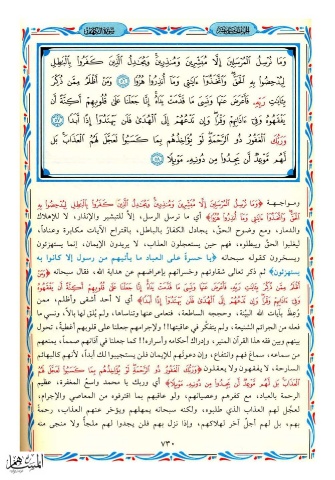 وَمَا نُرْسِلُ الْمُرْسَلِينَ إِلَّا مُبَشِّرِينَ وَمُنذِرِينَ وَيُجَادِلُ الَّذِينَ كَفَرُوا بِالْبَاطِلِ
لِيُدْحِضُوا بِهِ الْحَقَّ وَاتَّخَذُوا آيَاتِي وَمَا أُنذِرُوا هُزُوًا ﴿٥٦﴾ وَمَنْ أَظْلَمُ مِمَّن ذُكِّرَ
بِآيَاتِ رَبِّهِ فَأَعْرَضَ عَنْهَا وَنَسِيَ مَا قَدَّمَتْ يَدَاهُ إِنَّا جَعَلْنَا عَلَى قُلُوبِهِمْ أَكِنَّةً أَن
يَفْقَهُوهُ وَفِي آذَانِهِمْ وَقْرًا وَإِن تَدْعُهُمْ إِلَى الْهُدَى فَلَن يَهْتَدُوا إِذًا أَبَدًا ﴿٥٧﴾
وَرَبُّكَ الْغَفُورُ ذُو الرَّحْمَةِ لَوْ يُؤَاخِذُهُم بِمَا كَسَبُوا لَعَجَّلَ لَهُمُ الْعَذَابَ بَل
لَّهُم مَّوْعِدٌ لَّن يَجِدُوا مِن دُونِهِ مَوْئِلًا ﴿٥٨﴾
ومواجهة ﴿وَمَا نُرْسِلُ الْمُرْسَلِينَ إِلَّا مُبَشِّرِينَ وَمُنذِرِينَ وَيُجَادِلُ الَّذِينَ كَفَرُوا بِالْبَاطِلِ لِيُدْحِضُوا بِهِ
الْحَقَّ وَاتَّخَذُوا آيَاتِي وَمَا أُنذِرُوا هُزُوًا﴾ أي ما نرسل الرسل، إلا للتبشير والإنذار، لا للإهلاك
والدمار، ومع وضوح الحق، يجادل الكفار بالباطل، باقتراح الآيات مكابرة وعناداً،
ليغلبوا الحق ويبطلوه، فهم حين يستعجلون العذاب، لا يريدون الإيمان، إنما يستهزئون
ويسخرون كقوله سبحانه ﴿يا حسرة على العباد ما يأتيهم من رسول إلا كانوا به
يستهزئون﴾ ثم ذكر تعالى شقاوتهم وخسرانهم بإعراضهم عن هداية الله، فقال سبحانه ﴿وَمَنْ
أَظْلَمُ مِمَّن ذُكِّرَ بِآيَاتِ رَبِّهِ فَأَعْرَضَ عَنْهَا وَنَسِيَ مَا قَدَّمَتْ يَدَاهُ إِنَّا جَعَلْنَا عَلَى قُلُوبِهِمْ أَكِنَّةً أَن يَفْقَهُوهُ
وَفِي آذَانِهِمْ وَقْرًا وَإِن تَدْعُهُمْ إِلَى الْهُدَى فَلَن يَهْتَدُوا إِذًا أَبَدًا﴾ أي لا أحد أشقى وأظلم، ممن
وعظ بآيات الله البينة، وحججه الساطعة، فتعامى عنها وتناساها، ولم يلق لها بالاً، ونسي ما
فعله من الجرائم الشنيعة، ولم يتفكر في عاقبتها!! ولإجرامهم جعلنا على قلوبهم أغطية، تحول
بينهم وبين فقه هذا القرآن المنير، وإدراك أحكامه وأسراره!! كما جعلنا في آذانهم صمماً، يمنعهم
من سماعه، سماع فهم وانتفاع، وإن دعوتهم للإيمان فلن يستجيبوا لك أبداً، لأنهم كالبهائم
السارحة، لا يفقهون ولا يعقلون ﴿وَرَبُّكَ الْغَفُورُ ذُو الرَّحْمَةِ لَوْ يُؤَاخِذُهُم بِمَا كَسَبُوا لَعَجَّلَ لَهُمُ
الْعَذَابَ بَل لَّهُم مَّوْعِدٌ لَّن يَجِدُوا مِن دُونِهِ مَوْئِلًا﴾ أي وربك يا محمد واسع المغفرة، عظيم
الرحمة بالعباد، مع كفرهم وعصيانهم، ولو عاقبهم بما اقترفوه من المعاصي والإجرام،
لعجل لهم العذاب الذي طلبوه، ولكنه سبحانه يمهلهم ويؤخر عنهم العذاب، رحمة
بهم، بل لهم أجل آخر لهلاكهم، وإذا نزل بهم فلن يجدوا لهم ملجأ ولا منجى منه
٧٣٠